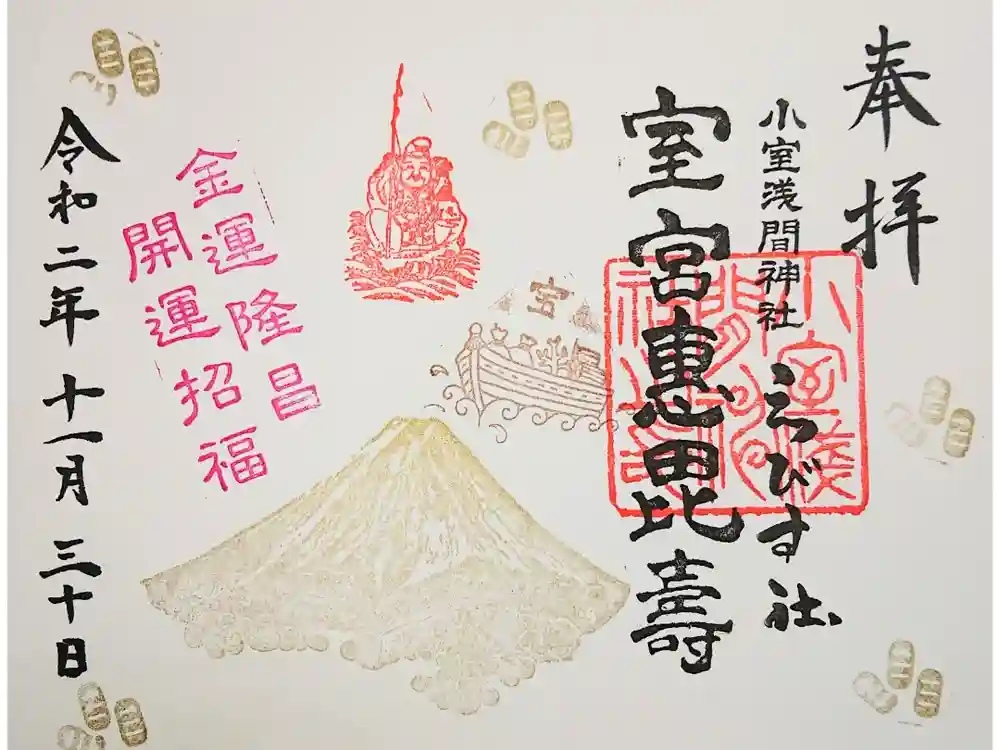 奉拝
小室浅間神社
ゑびす社
室宮恵毘壽
宝
金運隆昌
開運招福
令和二年十一月三十日